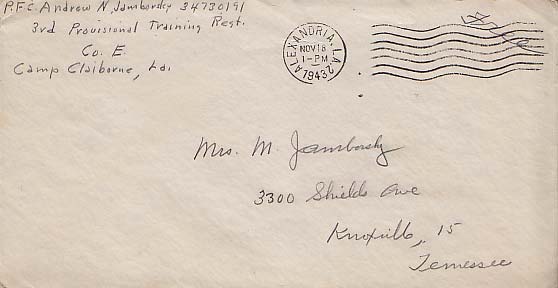 P.F.C. Andrew N. Jamborsky 34730191
3rd Provisional Training Regt.
Co. E
Camp Claiborne, La.
ALEXANDRIA, LA.
NOV 18
1-PM
1943
2
Mrs. M. Jamborsky
3300 Shields Ave
Knoxville, 15
Tennessee